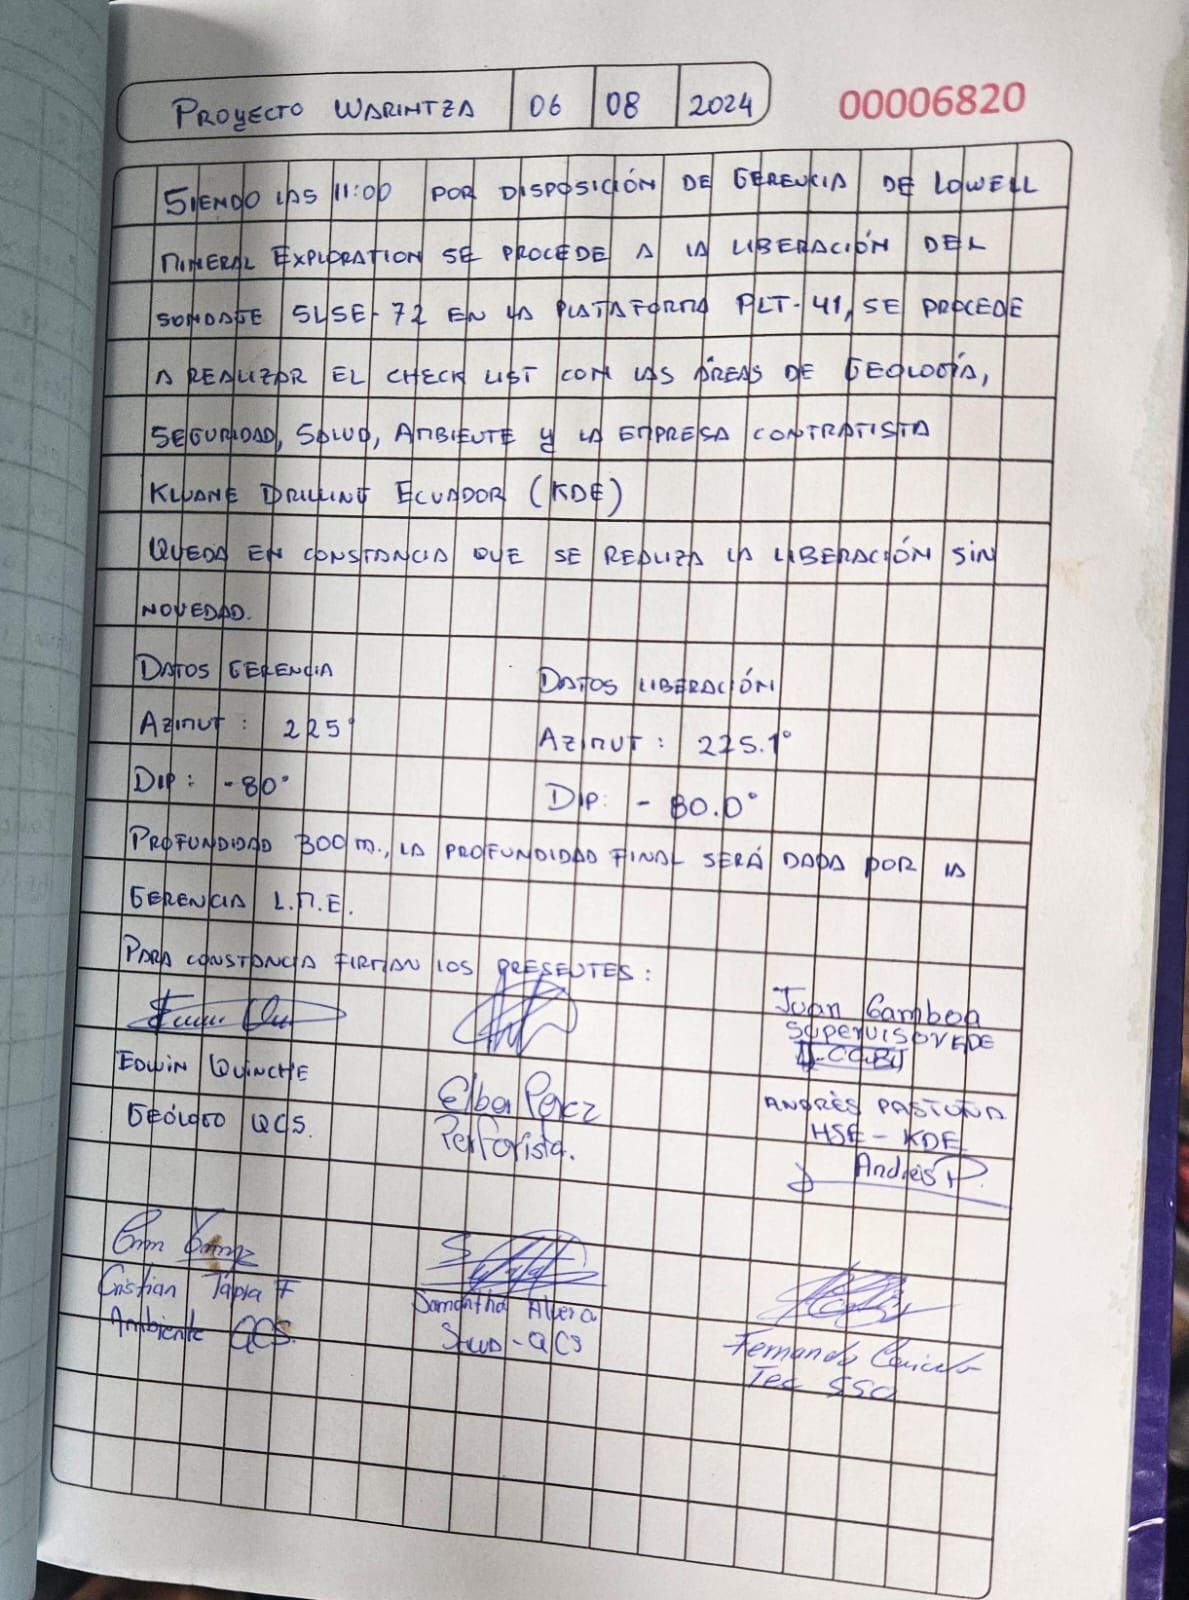 PROYECTO WARINTZA 06 08 2024 00006820
SIENDO LAS 11:00 POR DISPOSICIÓN DE GERENCIA DE LOWELL
MINERAL EXPLORATION SE PROCEDE A LA LIBERACIÓN DEL
SONDAJE SLSE-72 EN LA PLATAFORMA PLT-41, SE PROCEDE
A REALIZAR EL CHECK LIST CON LAS ÁREAS DE GEOLOGÍA,
SEGURIDAD, SALUD, AMBIENTE Y LA EMPRESA CONTRATISTA
KLUANE DRILLING ECUADOR (KDE)
QUEDA EN CONSTANCIA QUE SE REALIZA LA LIBERACIÓN SIN
NOVEDAD.
DATOS GERENCIA DATOS LIBERACIÓN
AZIMUT: 225° AZIMUT: 225.1°
DIP: -80° DIP: -80.0°
PROFUNDIDAD 300 m., LA PROFUNDIDAD FINAL SERÁ DADA POR LA
GERENCIA L.M.E.
PARA CONSTANCIA FIRMAN LOS PRESENTES:
Juan Gamboa
Supervisor KDE
EDWIN QUINCHE
GEÓLOGO QCS.
Elber Perez
Perforista.
ANDRÉS PASTUÑA
HSE - KDE
Andrés P.
Cristian Tapia F
Ambiente QCS.
Samantha
QCS
Fernando
Tec SSO